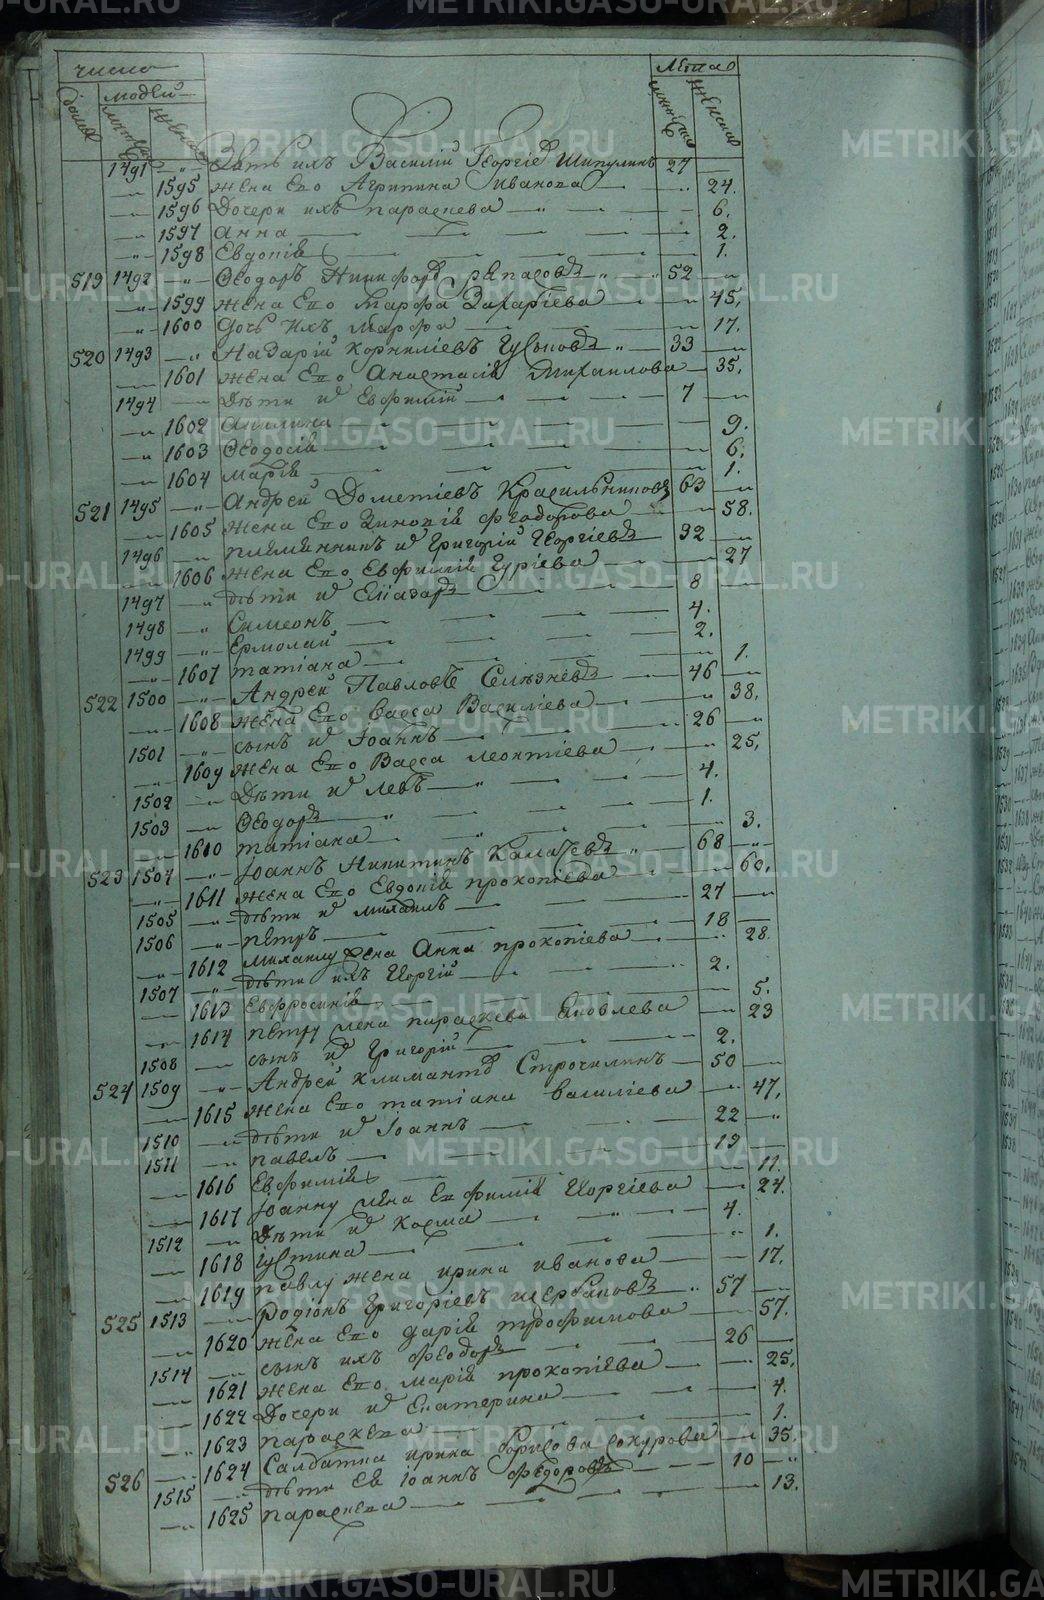 число
Лета
домов
людей
мужска
женска
мужеска
женска
1491 — Зять ихъ Василій Георгіевъ Шипулинъ 27 —
— 1595 жена Его Агрипина Иванова — 24.
— 1596 Дочери ихъ параскева — 6.
— 1597 анна — 2.
— 1598 Евдокія — 1.
519 1492 — Ѳеодоръ Никифоровъ 52 —
— 1599 жена Его Марфа Захаріева — 45,
— 1600 дочь ихъ Марфа — 17.
520 1493 — Назарій Корниліевъ Гусковъ 33 —
— 1601 жена Его Анастасія Михаилова — 35,
1494 — Дѣти и Евфимій 7 —
— 1602 Акилина — 9.
— 1603 Ѳеодосія — 6,
— 1604 Марія — 1.
521 1495 — Андрей Дометіевъ Красильниковъ 63 —
— 1605 жена Его Зиновія Феодорова — 58.
1496 — племянникъ и Григорій Георгіевъ 32 —
— 1606 жена Его Евфимія Гуріева — 27
1497 — дѣти и Еліазаръ 8 —
1498 — Симеонъ — 4.
1499 — Ермолай — 2.
— 1607 татіана — 1.
522 1500 — Андрей Павловъ Селѣзневъ 46 —
— 1608 жена Его Васса Василіева — 38,
1501 — сынъ и Іоаннъ 26 —
— 1609 жена Его Васса леонтіева — 25,
1502 — Дѣти и левъ — 4.
1503 — Ѳеодоръ — 1.
— 1610 татіана — 3.
523 1504 — Іоаннъ Никитинъ 68 —
— 1611 жена Его Евдокія прокопіева — 60,
1505 — дѣти и михаилъ 27 —
1506 — петръ 18 —
— 1612 михаилу жена Анна прокопіева — 28.
1507 — дѣти ихъ Георгій — 2.
— 1613 Евфросинія — 5.
— 1614 петру жена параскева Яковлева — 23
1508 — сынъ и Григорій — 2.
524 1509 — Андрей климантов Строчилинъ 50 —
— 1615 жена Его татіана василіева — 47,
1510 — дѣти и Іоаннъ 22 —
1511 — павелъ 19 —
— 1616 Евфимія — 11.
— 1617 Іоанну жена Евфимія Георгіева — 24.
1512 — Дѣти и Косма — 4.
— 1618 Густина — 1.
— 1619 павлу жена ирина иванова — 17.
525 1513 — родіонъ Григоріевъ щербаковъ 57 —
— 1620 жена Его дарія трофимова — 57.
1514 — сынъ ихъ Феодоръ 26 —
— 1621 жена Его марія прокопіева — 25,
— 1622 Дочери и Екатерина — 4.
— 1623 параскева — 1.
526 — 1624 Салдатка ирина борисова — 35.
1515 — дѣти Ея Іоаннъ Федоровъ 10 —
— 1625 параскева — 13.